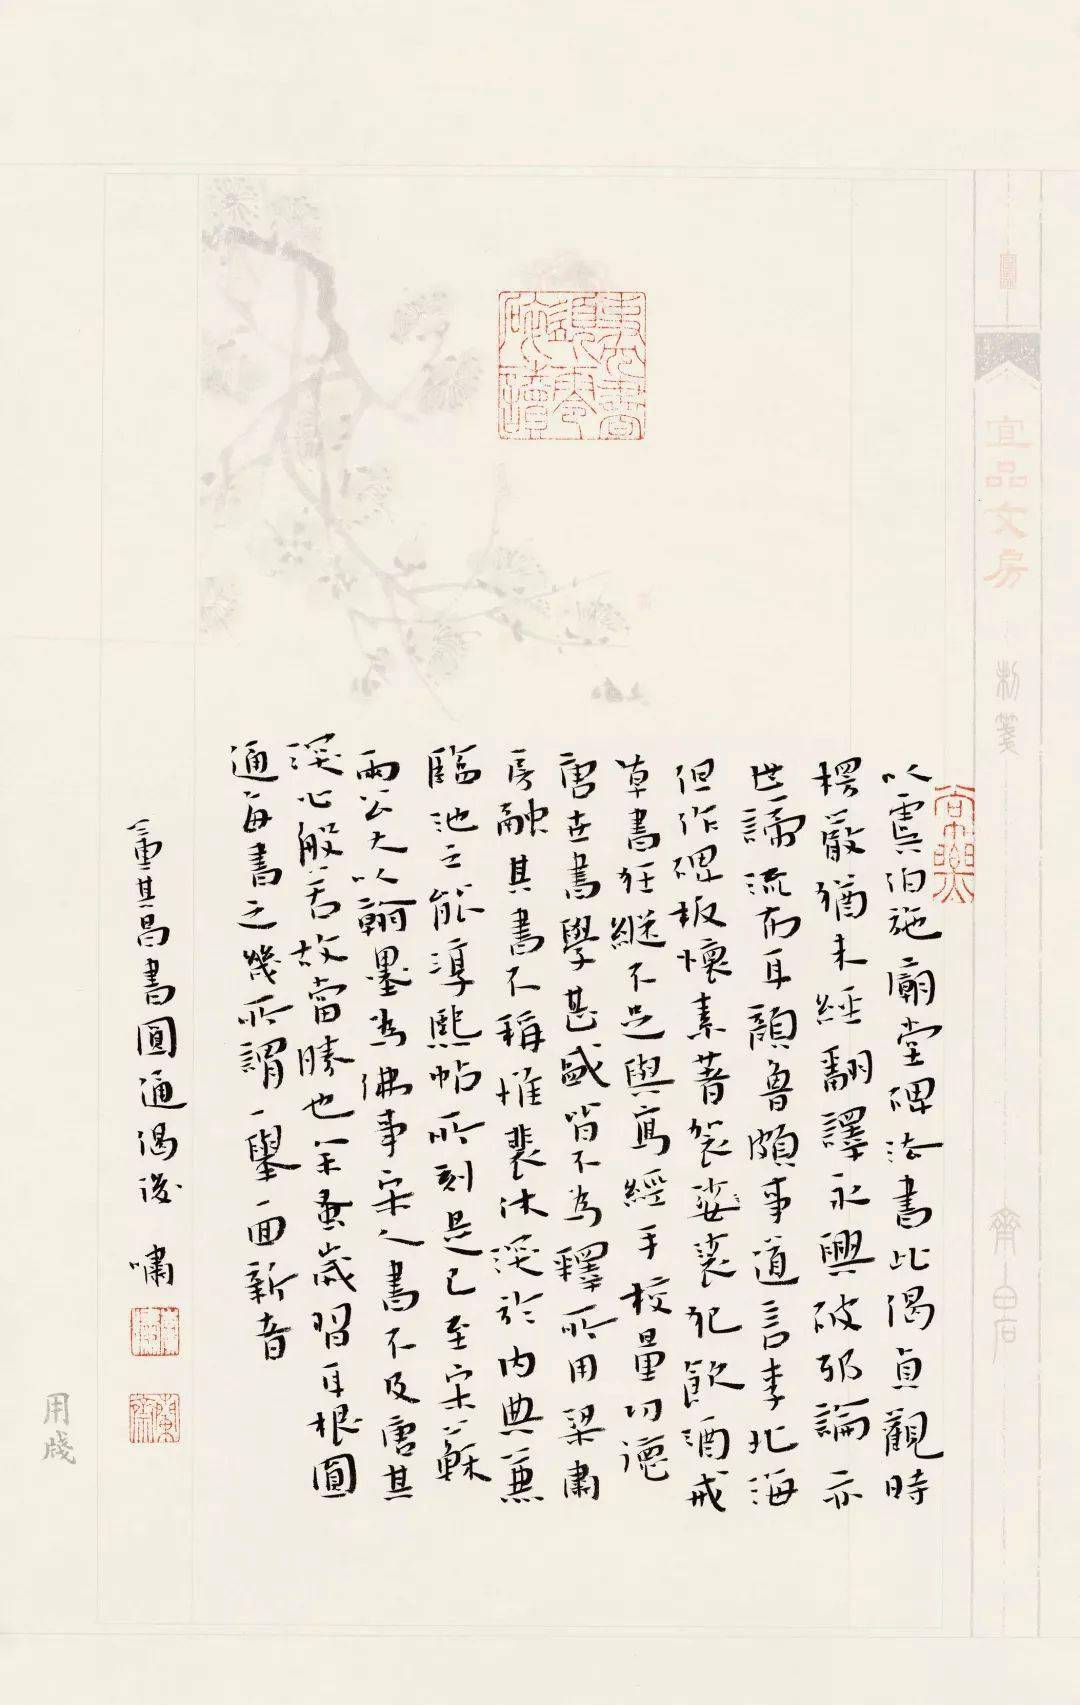 宜品文房 制箋 齊白石
以虞伯施廟堂碑法書此偈貞觀時
楞嚴猶未經翻譯永興破邪論亦
世諦流布耳顏魯頗事道言李北海
但作碑板懷素著袈娑裟犯飲酒戒
草書狂縱不足與寫經手校量功德
唐世書學甚盛皆不為釋所用梁肅
房融其書不稱惟裴休深於內典兼
臨池之能淳熙帖所刻是已至宋蘇
兩公大以翰墨為佛事宋人書不及唐其
深心般若故當勝也余蚤歲習耳根圓
通每書之幾所謂一舉一回新者
董其昌書圓通偈後 嘯
用牋